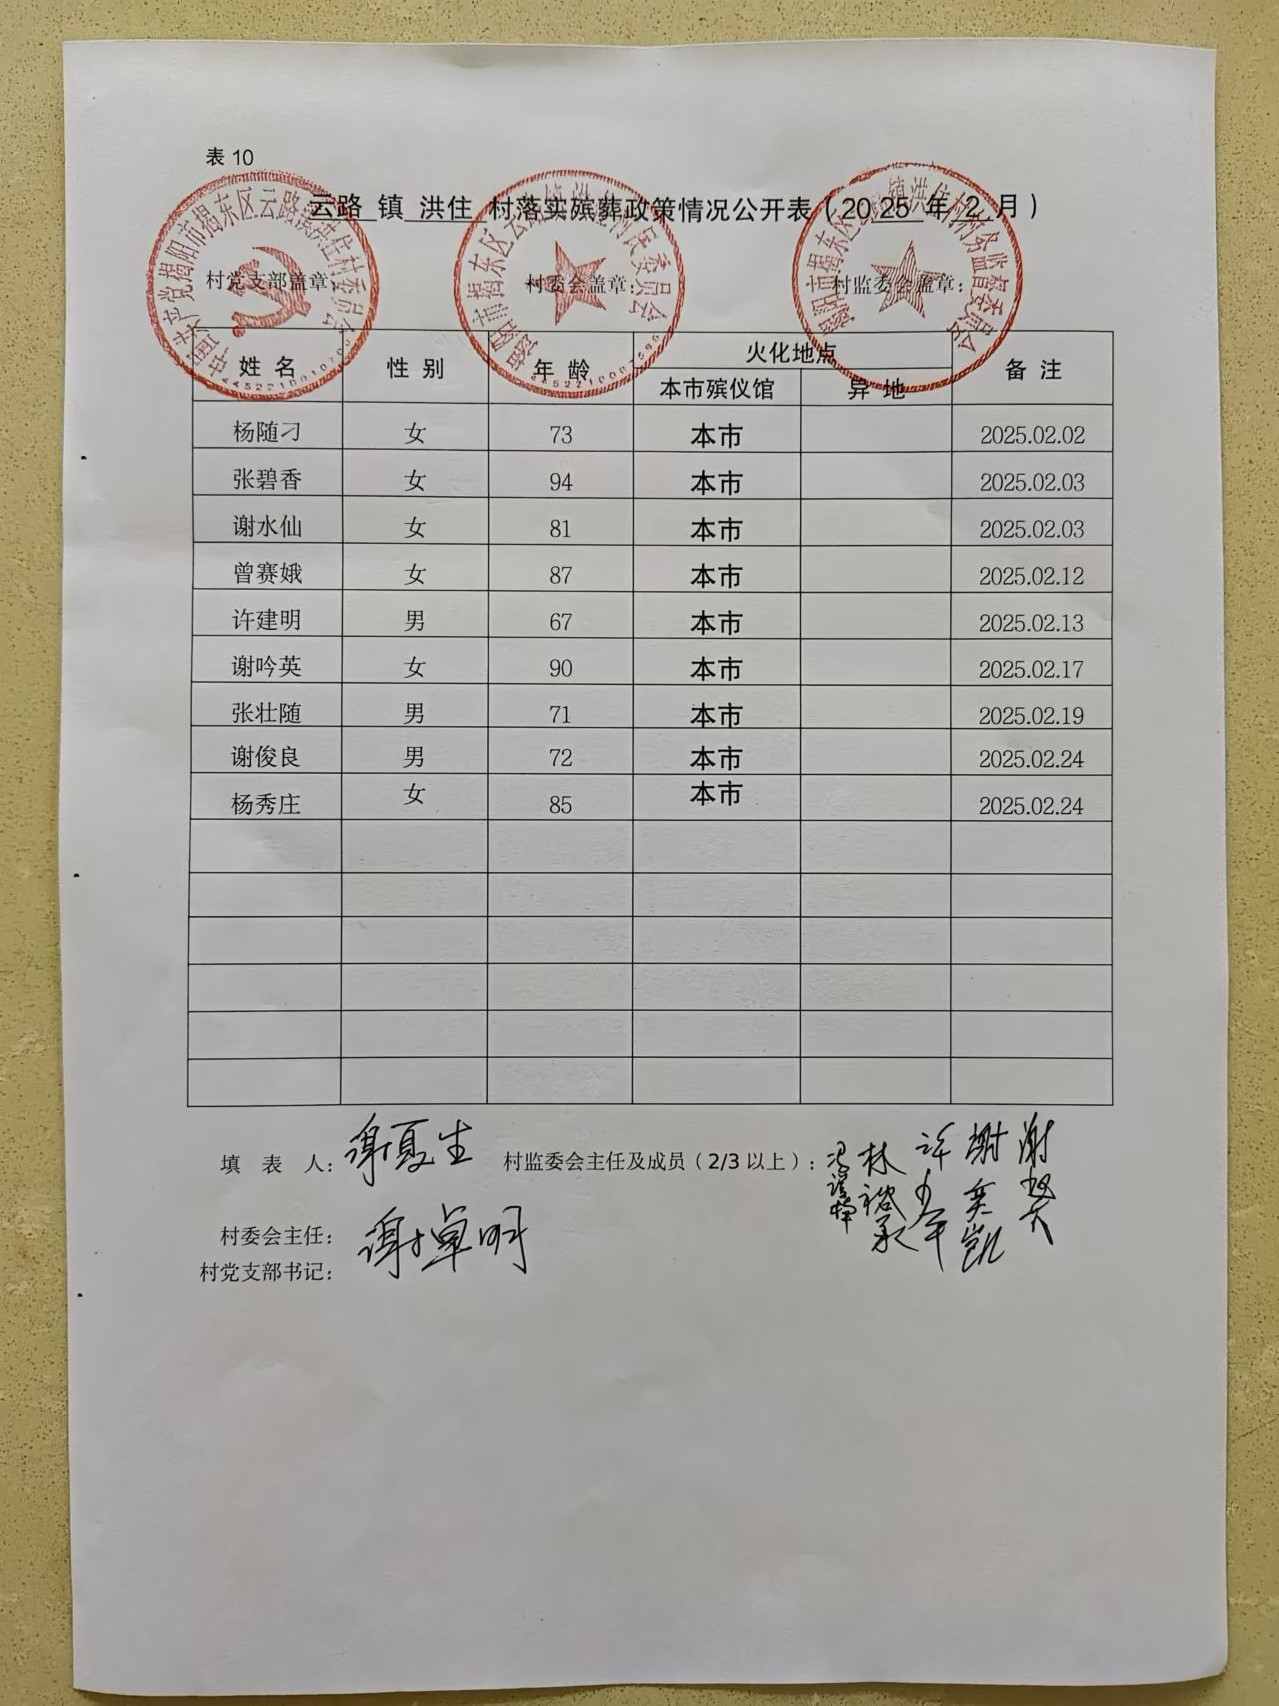 表 10
云路 镇 洪住 村落实殡葬政策情况公开表（2025 年 2 月）
村党支部盖章： 村委会盖章： 村监委会盖章：
姓 名 性 别 年 龄 火化地点 备 注
本市殡仪馆 异 地
杨随刁 女 73 本市 2025.02.02
张碧香 女 94 本市 2025.02.03
谢水仙 女 81 本市 2025.02.03
曾赛娥 女 87 本市 2025.02.12
许建明 男 67 本市 2025.02.13
谢吟英 女 90 本市 2025.02.17
张壮随 男 71 本市 2025.02.19
谢俊良 男 72 本市 2025.02.24
杨秀庄 女 85 本市 2025.02.24
填 表 人： 谢夏生 村监委会主任及成员（2/3 以上）：
村委会主任： 谢卓明
村党支部书记：
中国共产党揭阳市揭东区云路镇洪住村委员会
揭阳市揭东区云路镇洪住村村民委员会
揭阳市揭东区云路镇洪住村村务监督委员会